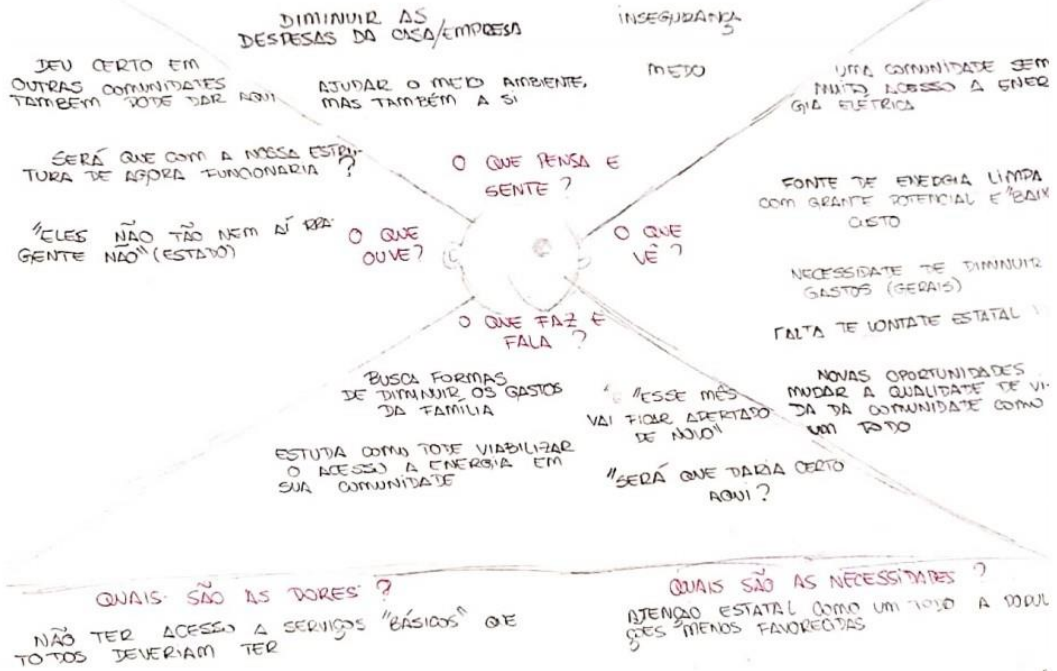 DIMINUIR AS
DESPESAS DA CASA/EMPRESA
INSEGURANÇA
MEDO
AJUDAR O MEIO AMBIENTE,
MAS TAMBÉM A SI
O QUE PENSA E
SENTE ?
DEU CERTO EM
OUTRAS COMUNIDADES
TAMBÉM PODE DAR AQUI
SERÁ QUE COM A NOSSA ESTRU-
TURA DE AGORA FUNCIONARIA ?
"ELES NÃO TÃO NEM AÍ PRA
GENTE NÃO" (ESTADO)
O QUE
OUVE?
O QUE
VÊ ?
UMA COMUNIDADE SEM
MUITO ACESSO A ENER
GIA ELÉTRICA
FONTE DE ENERGIA LIMPA
COM GRANTE POTENCIAL E "BAIX
CUSTO
NECESSIDATE DE DIMINUIR
GASTOS (GERAIS)
FALTA TE VONTATE ESTATAL
NOVAS OPORTUNIDADES
MUDAR A QUALIDATE DE VI-
DA DA COMUNIDATE COMO
UM TODO
O QUE FAZ E
FALA ?
BUSCA FORMAS
DE DIMINUIR OS GASTOS
DA FAMÍLIA
ESTUDA COMO PODE VIABILIZAR
O ACESSO A ENERGIA EM
SUA COMUNIDADE
"ESSE MÊS
VAI FICAR APERTADO
DE NOVO"
"SERÁ QUE DARIA CERTO
AQUI ?
QUAIS SÃO AS DORES ?
NÃO TER ACESSO A SERVIÇOS "BÁSICOS" QUE
TODOS DEVERIAM TER
QUAIS SÃO AS NECESSIDADES ?
ATENÇÃO ESTATAL COMO UM TODO A POPUL
ÇÕES MENOS FAVORECIDAS